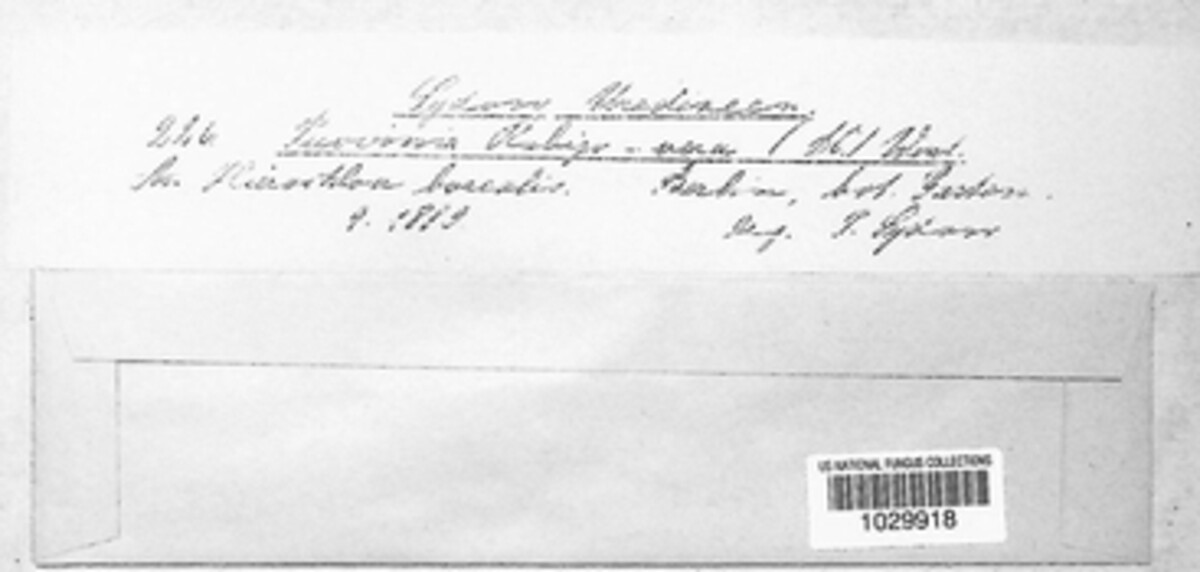 Sydow, Uredineen.
226. Puccinia Rubigo-vera (DC) Wint.
An. Hierochloa borealis. Berlin, bot. Garten.
9. 1889 leg. P. Sydow
US NATIONAL FUNGUS COLLECTIONS
1029918